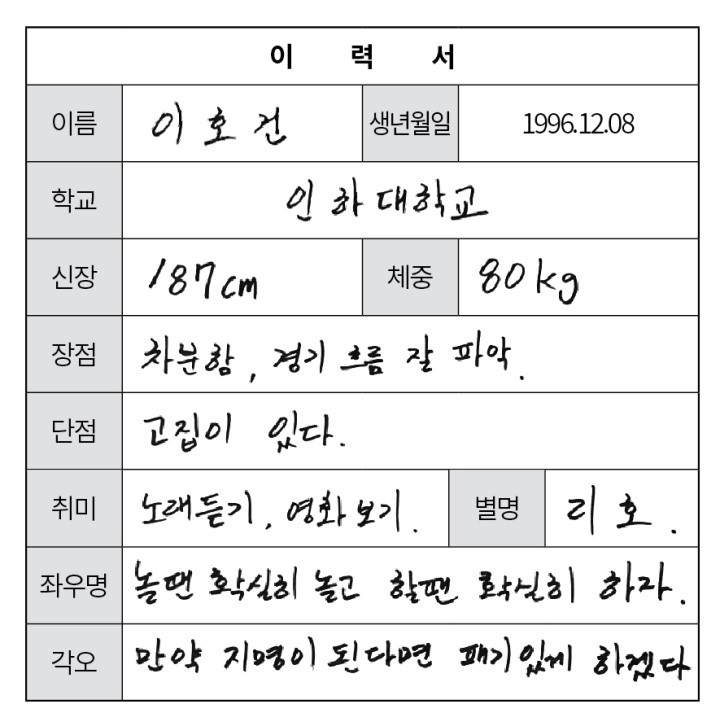 이 력 서
이름 이호건 생년월일 1996.12.08
학교 인하대학교
신장 187cm 체중 80kg
장점 차분함, 경기 흐름 잘 파악.
단점 고집이 있다.
취미 노래듣기, 영화보기. 별명 리호.
좌우명 놀땐 확실히 놀고 할땐 확실히 하자.
각오 만약 지명이 된다면 패기있게 하겠다